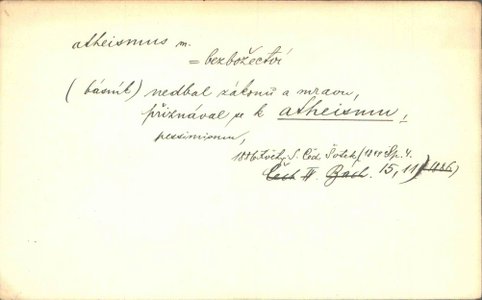 atheismus m.
= bezbožectví
(básník) nedbal zákonů a mravu,
přiznával se k atheismu,
pessimismu,
1886 Sv. Čech (1899 Sp. 4.
Čech II Bach. 15, 11) 1886)